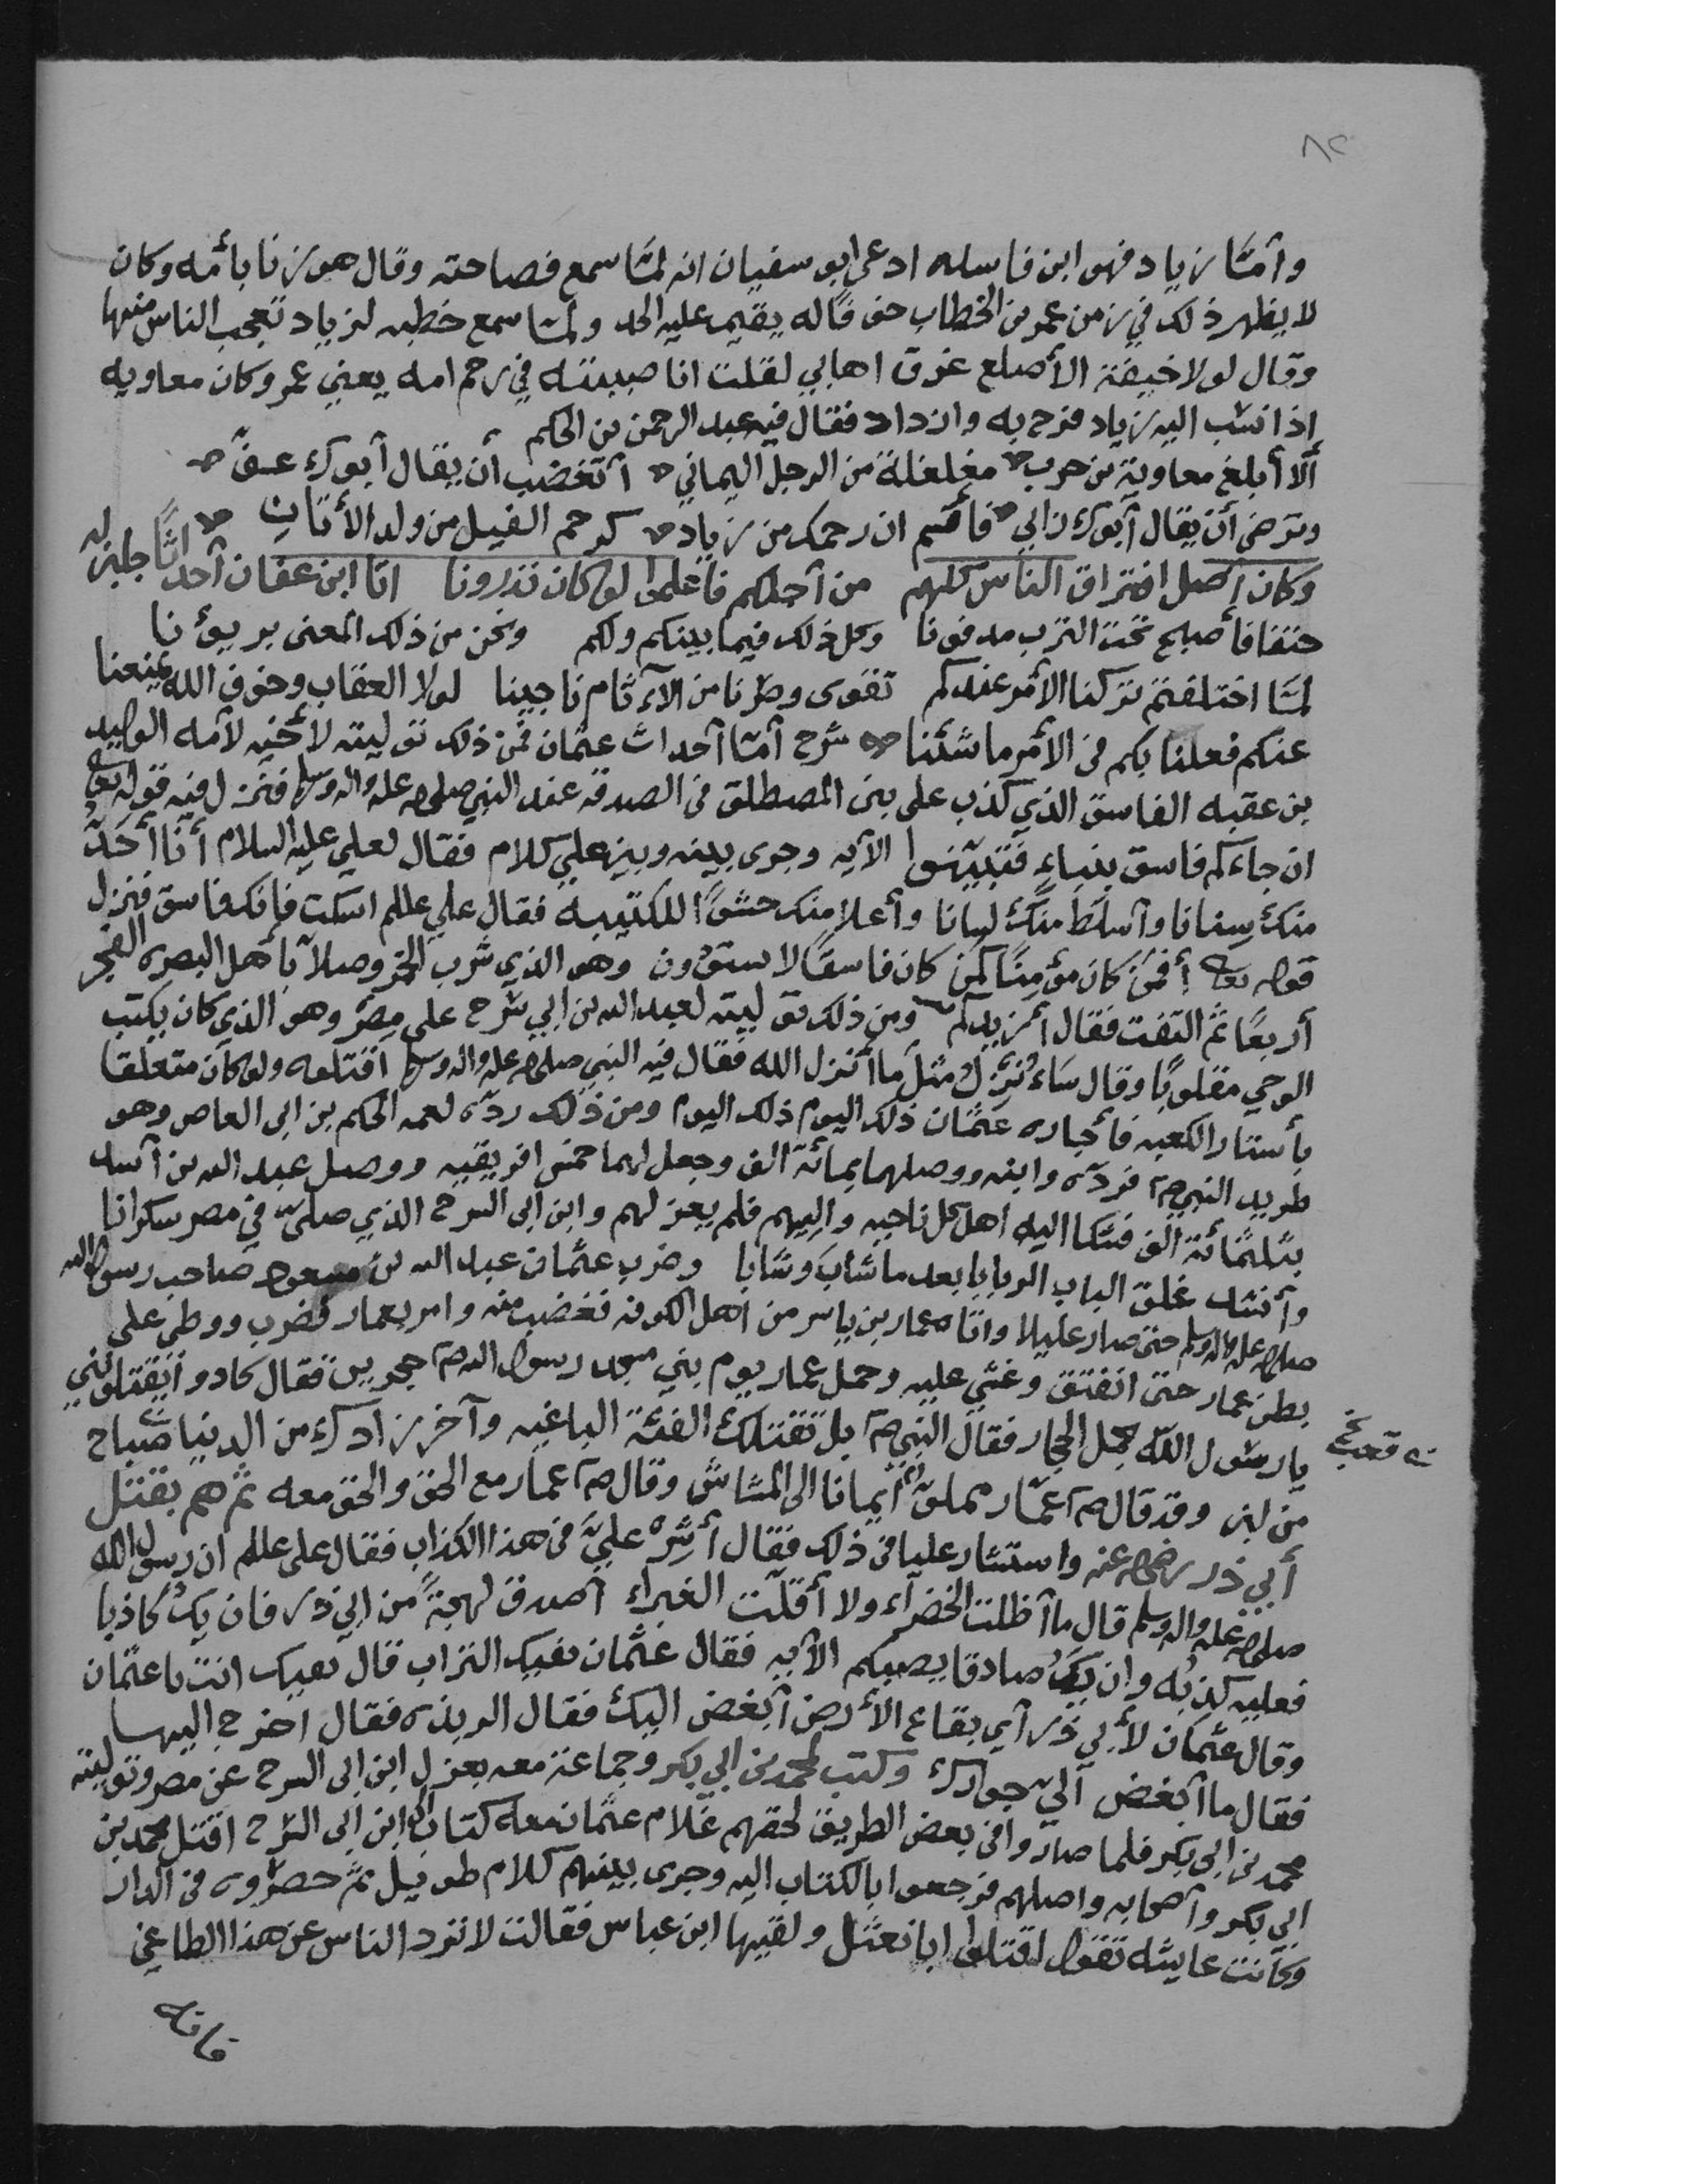 ٨٢
وأمّا زياد فهو ابن فاسله ادعى ابو سفيان انه لمّا سمع فصاحته وقال هو زنا بأمه وكان
لا يظهر ذلك في زمن عمر بن الخطاب خوفًا له يقيم عليه الحد ولمّا سمع خطبه لزياد تعجب الناس منها
وقال لولا خيفة الأصلع غرق اهابي لقلت انا صببته في رحم امه يعني عمر وكان معاويه
إذا نسب اليه زياد فرح به وازداد فقال فيه عبد الرحمن بن الحكم
ألا أبلغ معاوية بن حرب مغلغلة من الرجل اليماني أتغضب أن يقال أبوك عفّ
وترضى أن يقال أبوك زاني فأقسم ان رحمك من زياد كرحم الفيل من ولد الأتان
وكان أصل افتراق الناس كلهم من أجلكم فاعلموا لو كان تدرونا انا ابن عفان أحداثًا جلبن له
حتفا فأصبح تحت الترب مدفونا وكل ذلك فيما بينكم ولكم ونحن من ذلك المعنى بريؤنا
لمّا اختلفتم تركنا الأمر عندكم تقوى وصرنا من الآثام ناجينا لولا العقاب وخوف الله يمنعنا
عنكم فعلنا بكم في الأمر ما شئنا شرح أمّا أحداث عثمان فمن ذلك توليته لأخيه لأمه الوليد
بن عقبه الفاسق الذي كذب على بني المصطلق في الصدقة عند النبي صلى الله عليه واله وسلم فنزل فيه قوله تعالى
ان جاءكم فاسق بنباءٍ فتبيّنوا الآيه وجرى بينه وبين علي كلام فقال لعلي عليه السلام أنا أحَدّ
منك سنانا وأسلط منك لسانا وأعلا منك حشوًا للكتيبه فقال علي عللم اسكت فإنك فاسق فنزل
قوله تعالى أفمن كان مؤمنًا كمن كان فاسقًا لا يستوون وهو الذي شرب الخمر وصلا بأهل البصره الفجر
أربعًا ثم التفت فقال أزيدكم ومن ذلك توليته لعبد الله بن ابي سرح على مصر وهو الذي كان يكتب
الوحي مقلوبًا وقال سَاءنزل مثل ما أنزل الله فقال فيه النبي صلى الله عليه واله وسلم اقتلوه ولو كان متعلقا
بأستار الكعبه فأجاره عثمان ذلك اليوم ذلك اليوم ومن ذلك ردّه لعمه الحكم بن ابى العاص وهو
طريد النبي صم فردّه وابنه ووصلهما بمائة الف وجعل لهما خمس افريقيه ووصل عبد الله بن أسد
بثلثمائة الف فشكا اليه اهل كل ناحيه واليهم فلم يعزلهم وابن ابى السرح الذي صلى في مصر سكرانا
وأنشد علق الباب الربابا بعد ما شابَ وشابا وضرب عثمان عبد الله بن مسعود صاحب رسول الله
صلى الله عليه واله وسلم حتى صار عليلا وأتاه عمار بن ياسر من اهل الكوفه فغضب منه وامر بعمار فضرب ووطي على
بطن عمار حتى انفتق وغشي عليه وحمل عمار يوم بني مسجد رسول الله صم حجرين فقال كادوا يقتلونني
يا رسول الله بحمل الحجار فقال النبي صم بل تقتلك الفئة الباغيه وآخر زادك من الدنيا صباح
نه قعب نخ
من لبن وقد قال صم عمّار مملوّ أيمانا الى المشاش وقال صم عمار مع الحق والحق معه ثم هم بقتل
أبي ذر رضي الله عنه واستشار عليا في ذلك فقال أشِرْ عليَّ في هذا الكذاب فقال علي عللم ان رسول الله
صلى الله عليه واله وسلم قال ما أظلت الخضراء ولا أقلّت الغبراء أصدق لهجة من ابي ذر فان يك كاذبا
فعليه كذبُه وان يكُ صادقا يصبكم الآيه فقال عثمان بفيك التراب قال بفيك انت يا عثمان
وقال عثمان لأبي ذر أي بقاع الأرض أبغض اليك فقال الربذه فقال اخرج اليها
فقال ما أبغض اليّ جوارك وكتب لمحمد بن ابي بكر وجماعة معه بعزل ابن ابى السرح عن مصر وتولية
محمد بن ابي بكر فلما صاروا في بعض الطريق لحقهم غلام عثمان معه كتاب الى ابن ابى السرح اقتل محمد بن
ابي بكر وأصحابه واصلهم فرجعوا بالكتاب اليه وجرى بينهم كلام طويل ثم حصروه في الدار
وكانت عايشه تقول اقتلوا ابا نعثل ولقيها ابن عباس فقالت لا ترد الناس عن هذا الطاغي
فانه